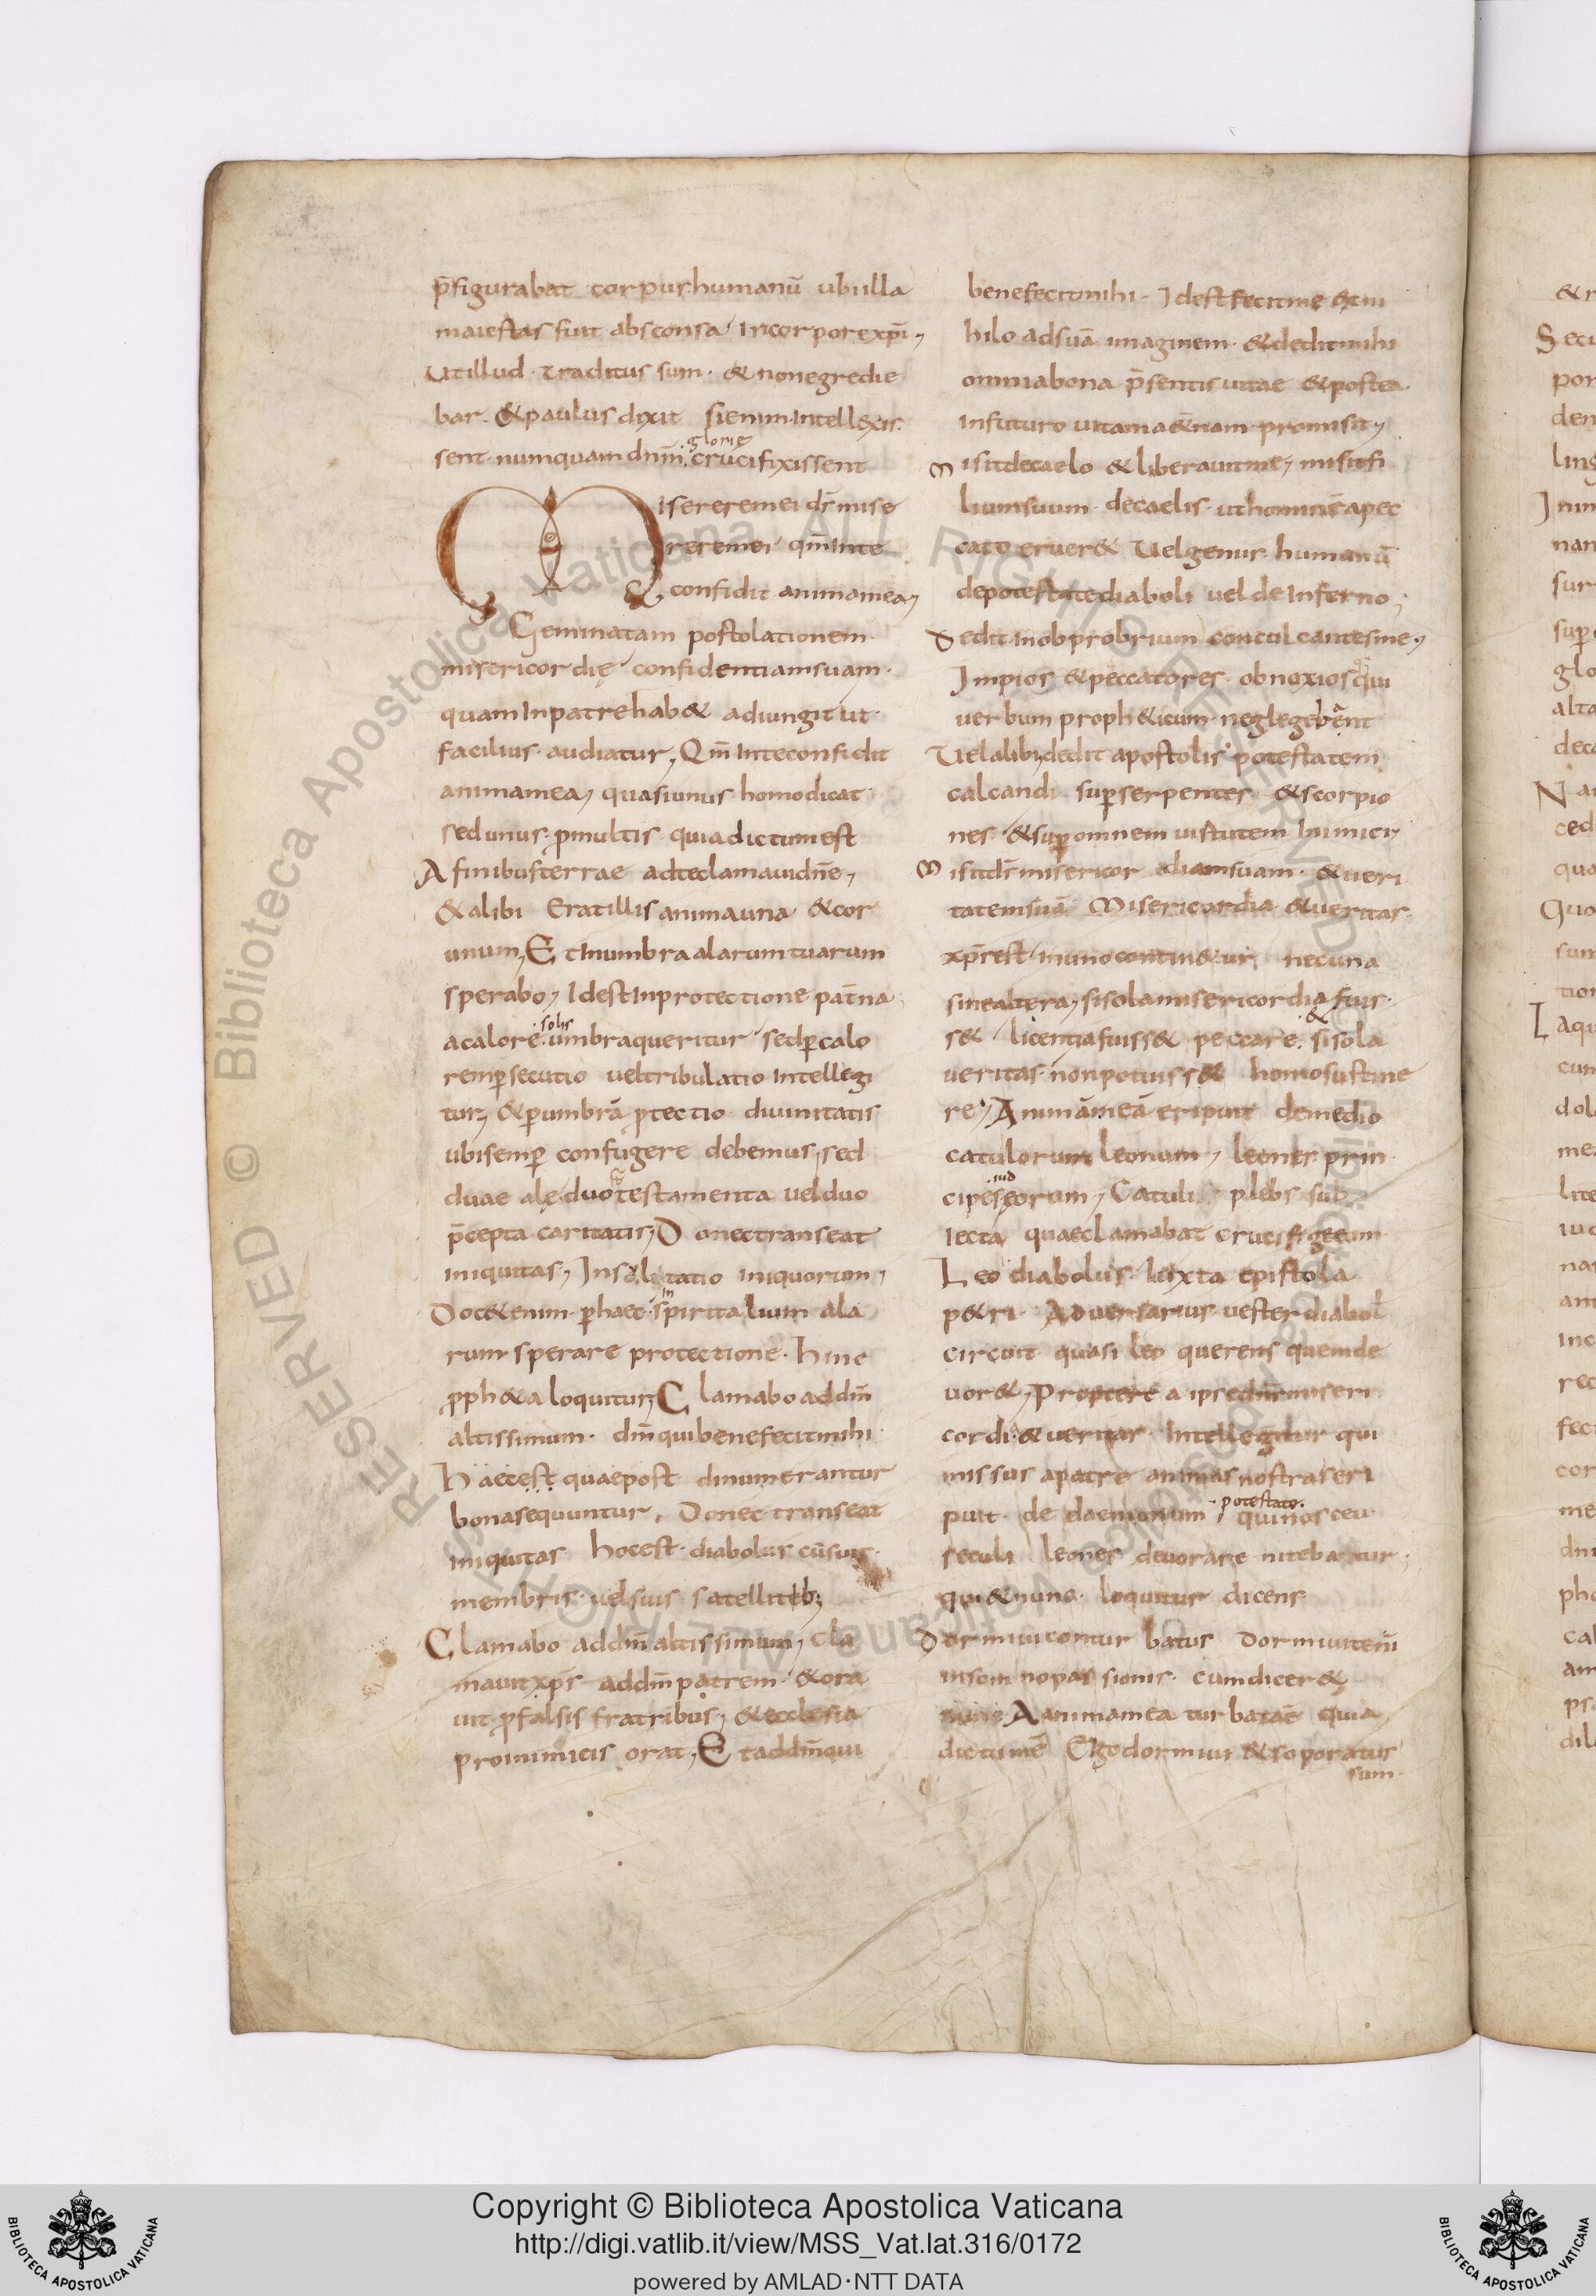 p̄figurabat corpus humanū ubi illa
maiestas fuit absconsa in corpore xp̄i,
ut illud traditus sum · & non egredie
bar · & paulus dixit si enim intellexis
sent · numquam dnm̄ · glorię crucifixissent
Miserere mei ds̄ mise
rere mei qm̄ in te
confidit anima mea,
Geminatam postolationem
misericordię confidentiam suam ·
quam in patre hab& adiungit ut
facilius audiatur, Qm̄ in te confidit
anima mea, quasi unus homo dicat
sed unus p̄ multis quia dictum est
A finibus terrae ad te clamaui dn̄e,
& alibi Erat illis anima una & cor
unum, Et in umbra alarum tuarum
sperabo, Id est in protectione pat̄na
a calore · solis umbra queritur sed p̄ calo
rem p̄secutio uel tribulatio intellegi
tur, & p̄ umbrā p̄tectio diuinitatis
ubi semp̄ confugere debemus, sed
duae alę duo testamenta uel duo
p̄cepta caritatis, Donec transeat
iniquitas, Insolitatio iniquorum,
Doc& enim p̄ haec · in spiritalium ala
rum sperare protectione · hinc
p̄ph&a loquitur, Clamabo ad dm̄
altissimum · dm̄ qui benefecit mihi
Haec est quae post dinumerantur
bona sequuntur, Donec transeat
iniquitas hoc est · diabolus cū suis
membris uel suis satellitib;
Clamabo ad dm̄ altissimum, Cla
mauit xp̄s ad dm̄ patrem · & ora
uit p̄ falsis fratribus, & ecclesia
pro inimicis orat, Et ad dm̄ qui
benefecit mihi · Id est fecit me de ni
hilo ad suā imaginem · & dedit mihi
omnia bona p̄sentis uitae & postea
in futuro uitam a&̄nam promisit,
Misit de caelo & liberauit me, misit fi
lium suum de caelis · ut hominē a pec
cato eruer& Uel genus humanū
de potestate diaboli uel de inferno,
Dedit in obprobrium conculcantes me,
Impios & peccatores obnoxios qui
uerbum proph&icum neglegebant
Uel alib; dedit apostolis potestatem
calcandi sup̄ serpentes & scorpio
nes · & sup̄ omnem uirtutem inimici,
Misit ds̄ misericordiam suam · & ueri
tatem suā Misericordia & ueritas
xp̄s est in uno contin&ur, nec una
sine altera, si sola misericordia fuis
s& licentia fuiss& peccare · & si sola
ueritas non potuiss& homo sustine
re, Animā meā eripuit de medio
catulorum leonum, leones prin
cipes · iud eorum, Catuli · plebs sub
iecta quae clamabat crucifige eum
Leo diabolus iuxta epistola
p&ri · Aduersarius uester diabol
circuit quasi leo querens quem de
uor&, Propterea ipse dn̄s miseri
cordia & ueritas Intellegitur qui
missus a patre animas nostras eri
puit de daemonum · potestate. qui nos ceu
seculi leones deuorare nitebantur
qui & nunc loquitur dicens
Dormiui conturbatus Dormiui tem̄
in somno passionis · cum dicer&
Anima mea turbata ē quia
dictum ē Ego dormiui & soporatus
sum ·
& r
Secu
por
den
ling
Inim
nan
sur
sup
glo
alta
deca
N an
ced
qua
Quo
sum
tion
Laqu
cum
dol
mea
lite
iud
nas
ani
inc
rec
fec
cor
me
dni
pho
cal
am
psa
dil
Biblioteca Apostolica Vaticana ALL RIGHTS RESERVED ©
Copyright © Biblioteca Apostolica Vaticana
http://digi.vatlib.it/view/MSS_Vat.lat.316/0172
powered by AMLAD·NTT DATA
BIBLIOTECA APOSTOLICA VATICANA
BIBLIOTECA APOSTOLICA VATICANA